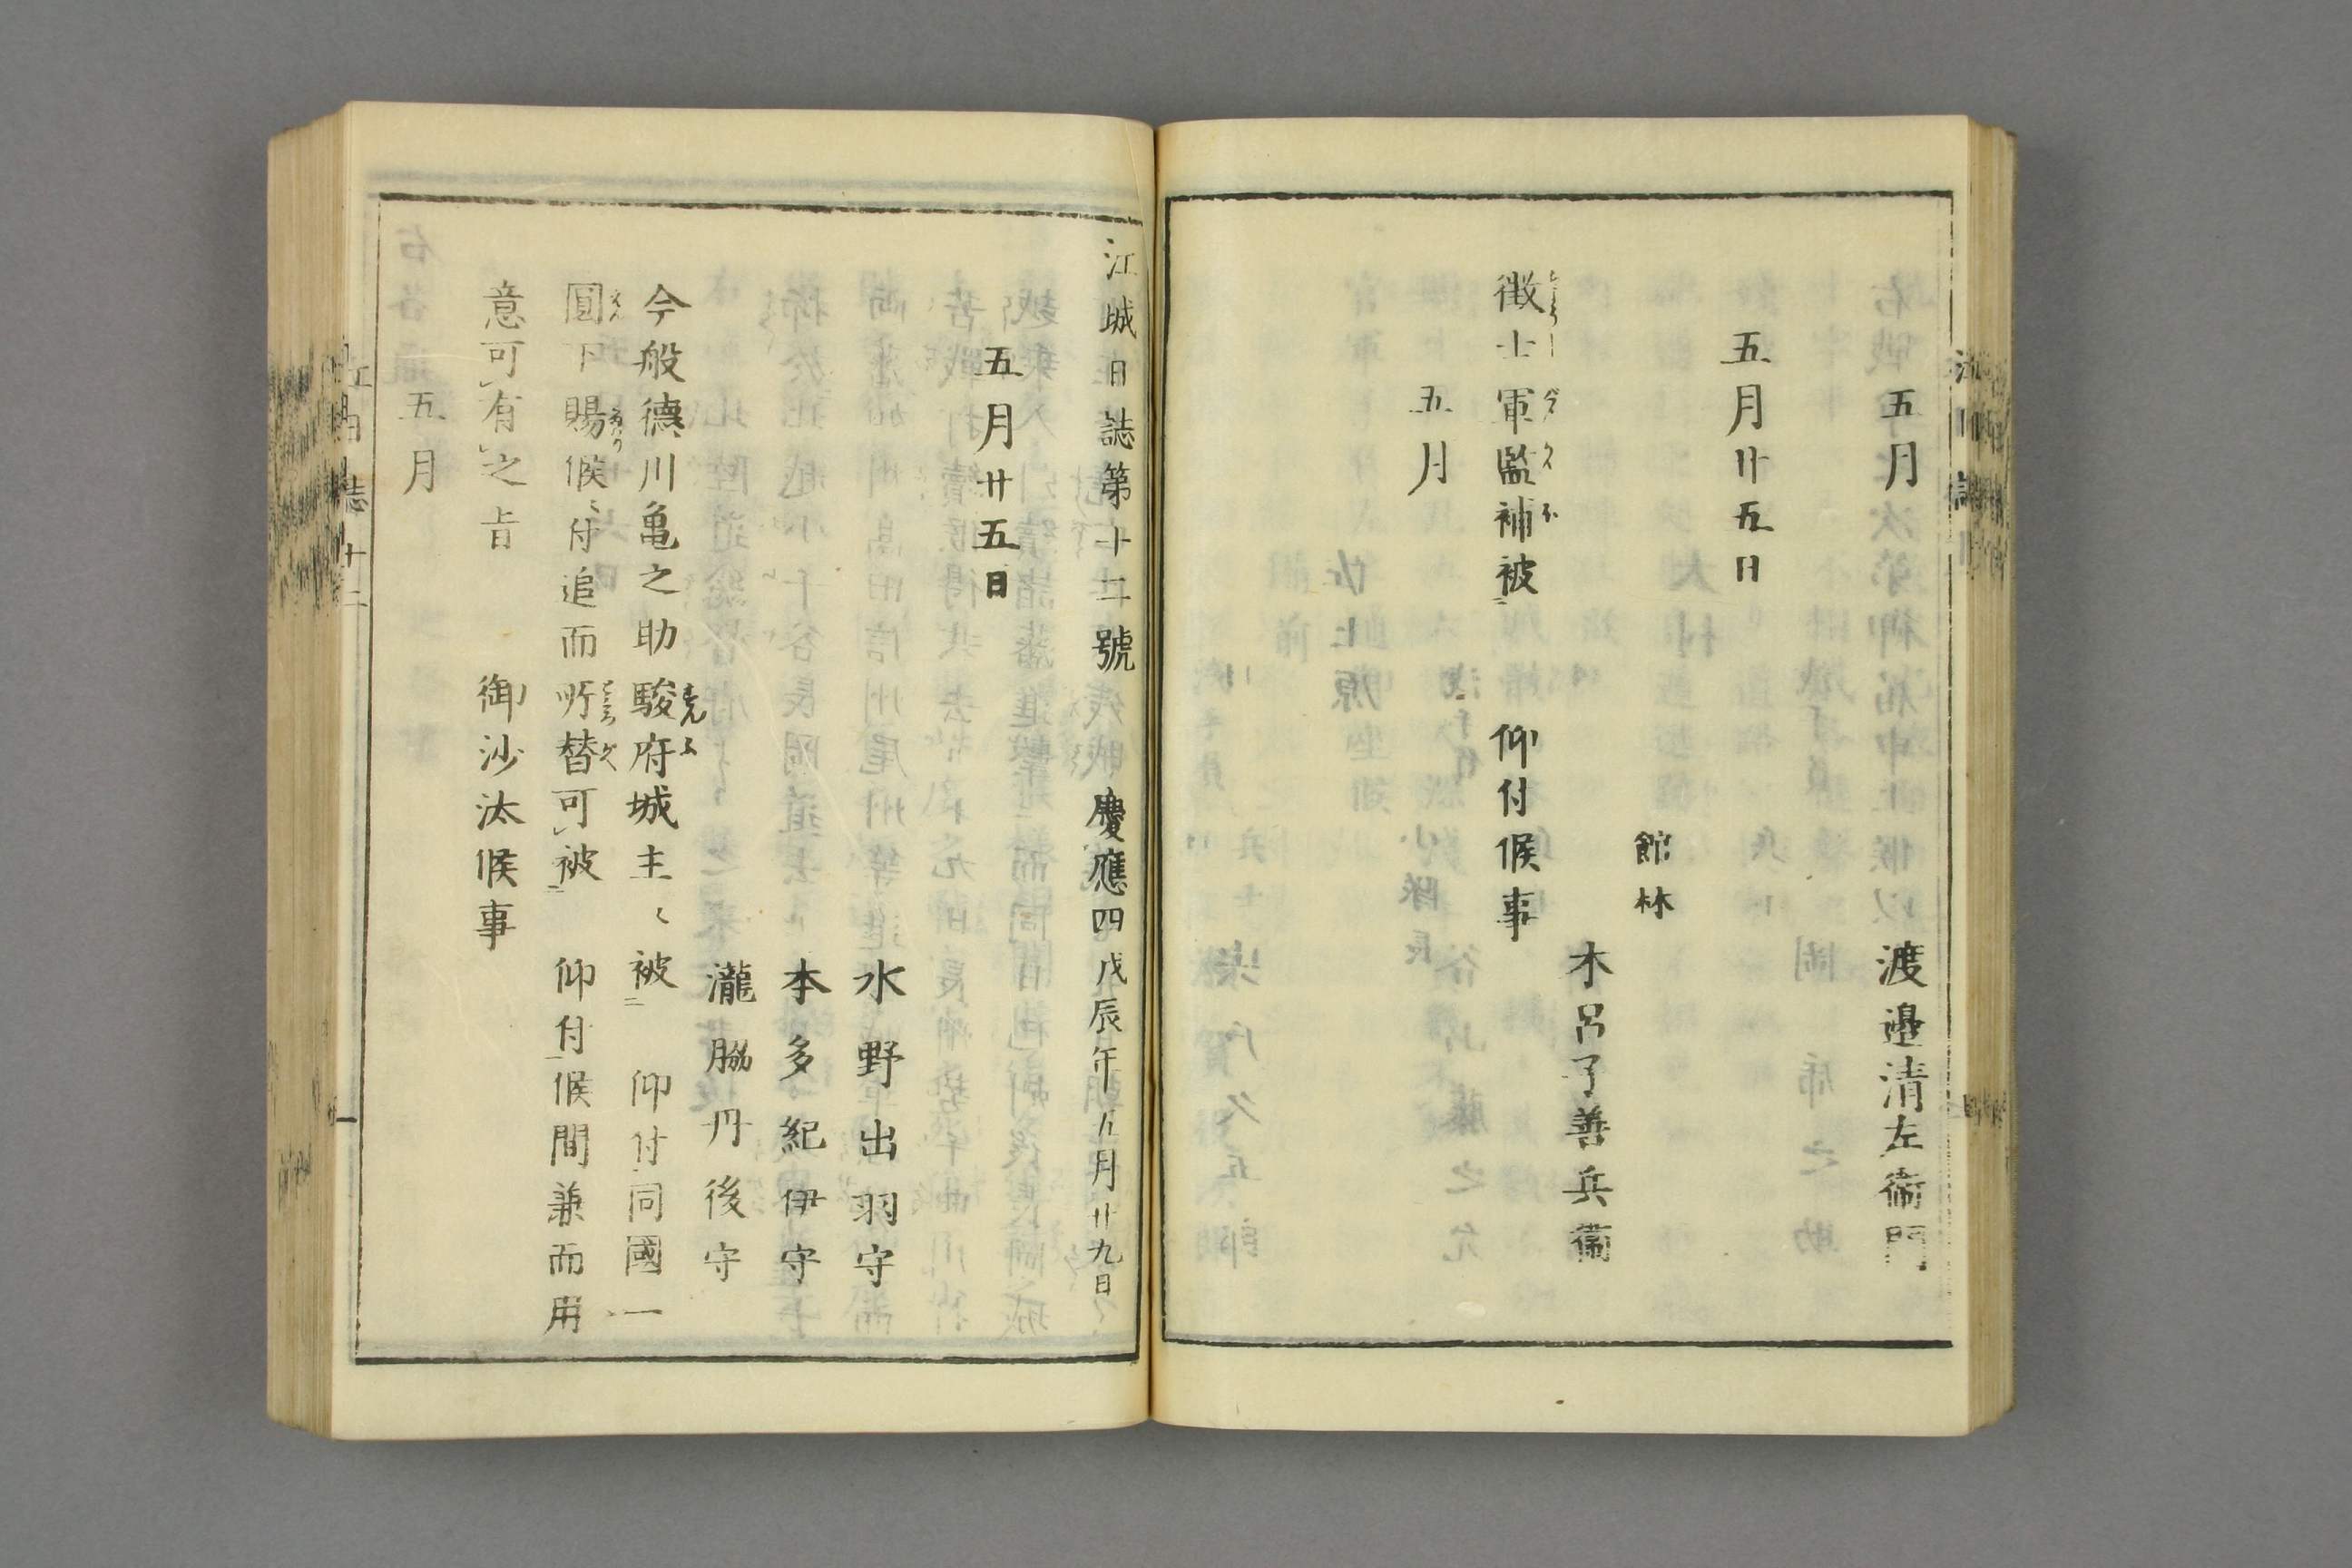 五月
渡邉清左衞門
五月廿五日
館林
木呂子善兵衞
徴士軍監補被 仰付候事
五月
江城日誌第十二號 慶應四戊辰年五月廿九日
五月廿五日
水野出羽守
本多紀伊守
瀧脇丹後守
今般德川亀之助駿府城主ヘ被 仰付同國一
圓下賜候ニ付追而所替可被 仰付候間兼而用
意可有之旨 御沙汰候事
五月
江城日誌十二